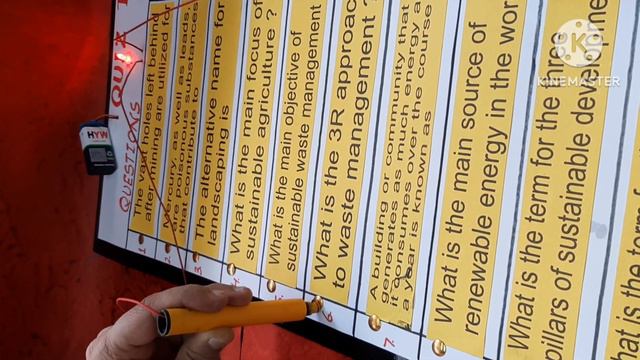 QUIZ
QUESTIONS
1. The vast holes left behind
after mining are utilized for
2. Mercury, as well as leads,
are poisonous substances
that contribute to
3. The alternative name for
landscaping is
4. What is the main focus of
sustainable agriculture ?
5. What is the main objective of
sustainable waste management
6. What is the 3R approac
to waste management ?
7. A building or community that
generates as much energy a
it consumes over the course
a year is known as
What is the main source of
renewable energy in the wor
What is the term for the
pillars of sustainable developme
hat is the
KINEMASTER
HYW